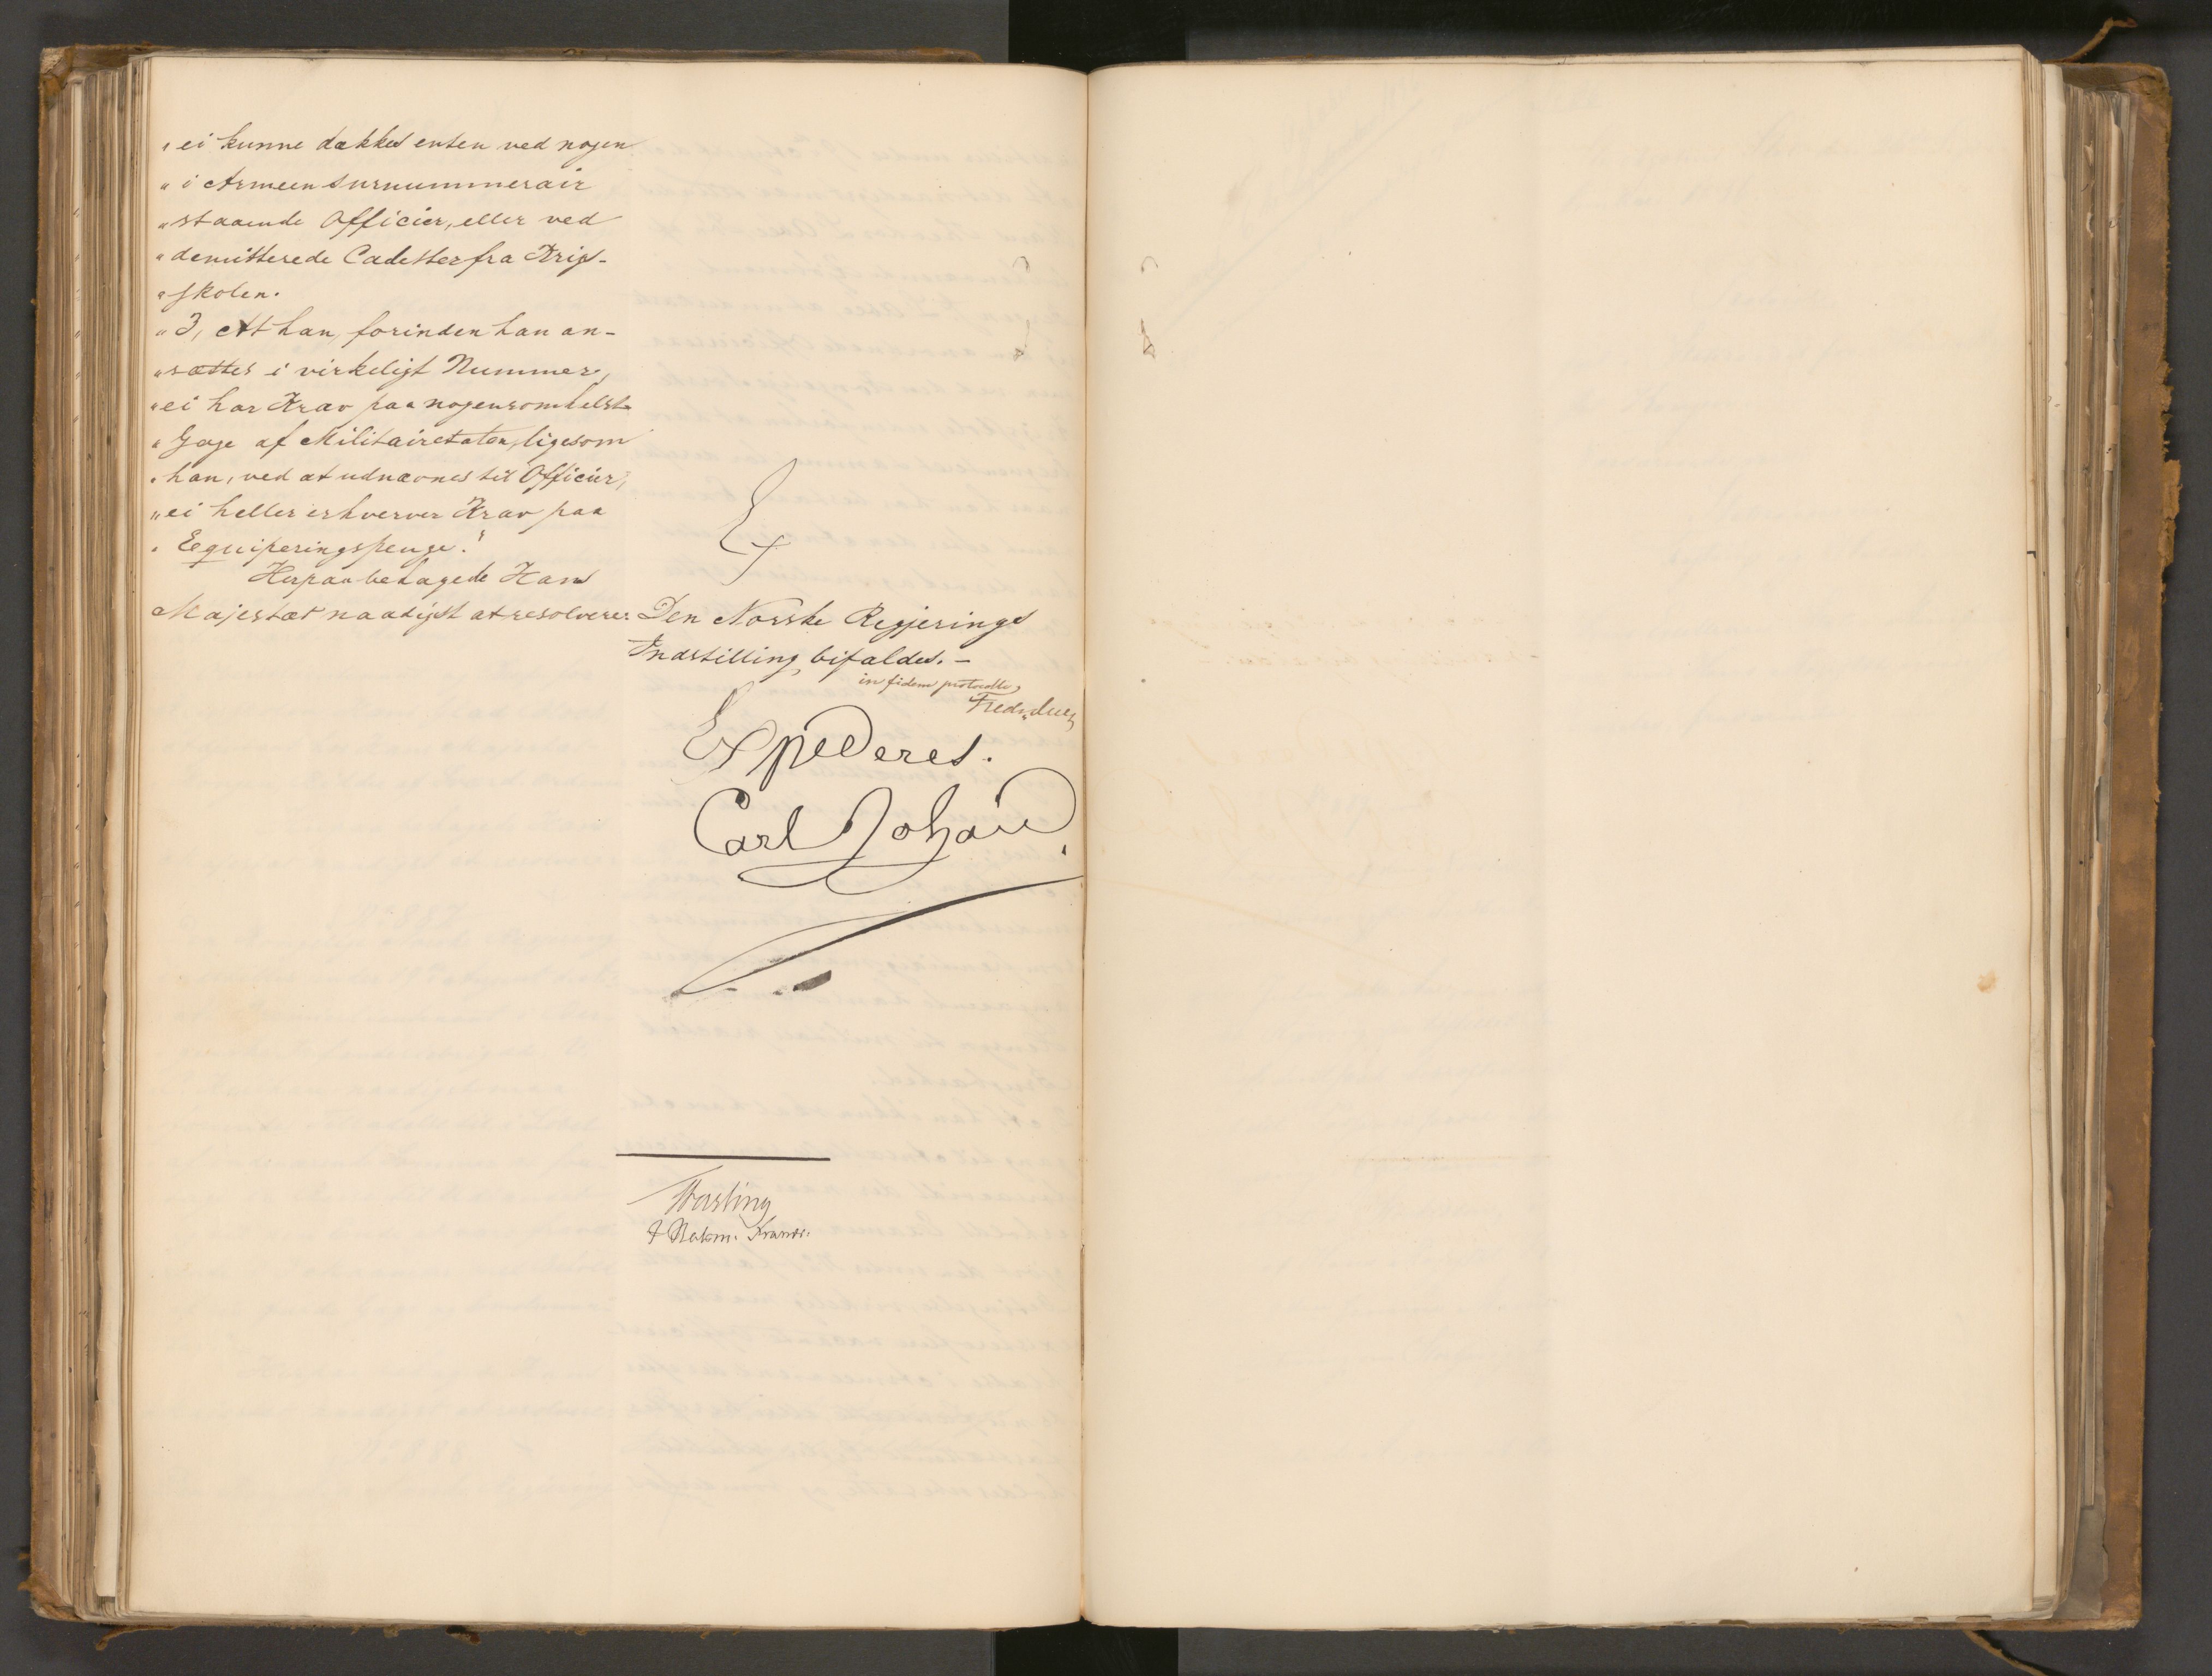 „ei kunne dækkes enten ved nogen
„i Armeen surnummerair
„staaende Officier, eller ved
„demitterede Cadetter fra Krigs-
„skolen.
„3, At han, forinden han an-
„sættes i virkeligt Nummer,
„ei har Krav paa nogensomhelst
„Gage af Militairetaten, ligesom
„han, ved at udnævnes til Officier,
„ei heller erhverver Krav paa
„Equiperingspenge."
Herpaa behagede Hans
Majestæt naadigst at resolvere:
Ex
Den Norske Regjerings
Indstilling bifaldes. –
in fidem protocolli,
Fred. Due
Expederes.
Carl Johan